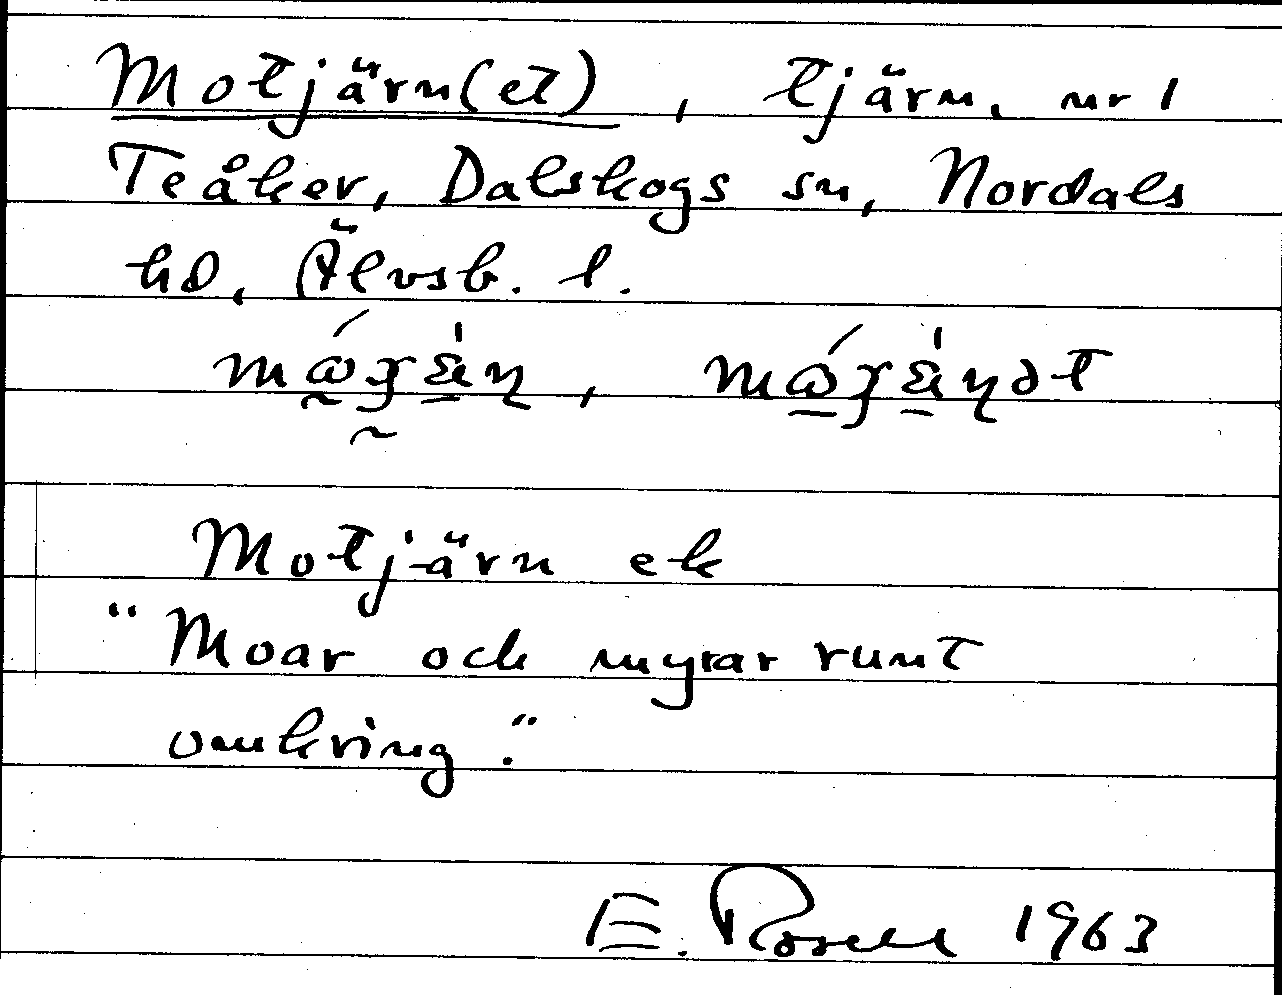 Motjärn(et), tjärn, nr 1
Teåker, Dalskogs sn, Nordals
hd, Älvsb. l.
Motjärn ek
"Moar och myrar runt
omkring."
E. Rosell 1963